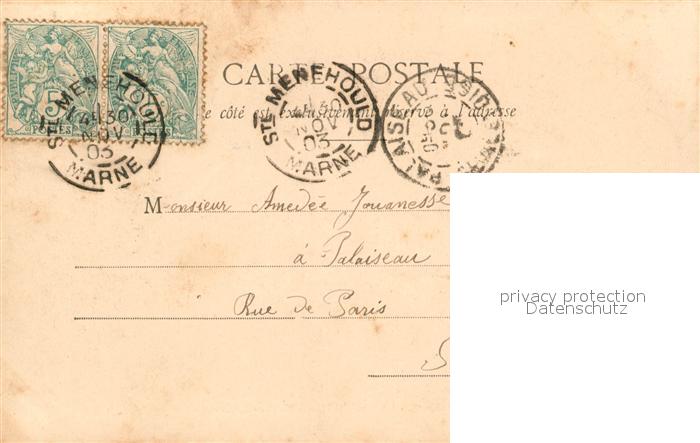 CARTE POSTALE
ce côté est exclusivement réservé à l'adresse
STE MENEHOULD
30
NOV
03
MARNE
STE MENEHOULD
30
NOV
03
MARNE
PALAISEAU
5
POSTES
Monsieur Amedée Jouanesse
à Palaiseau
Rue de Paris
S
privacy protection
Datenschutz